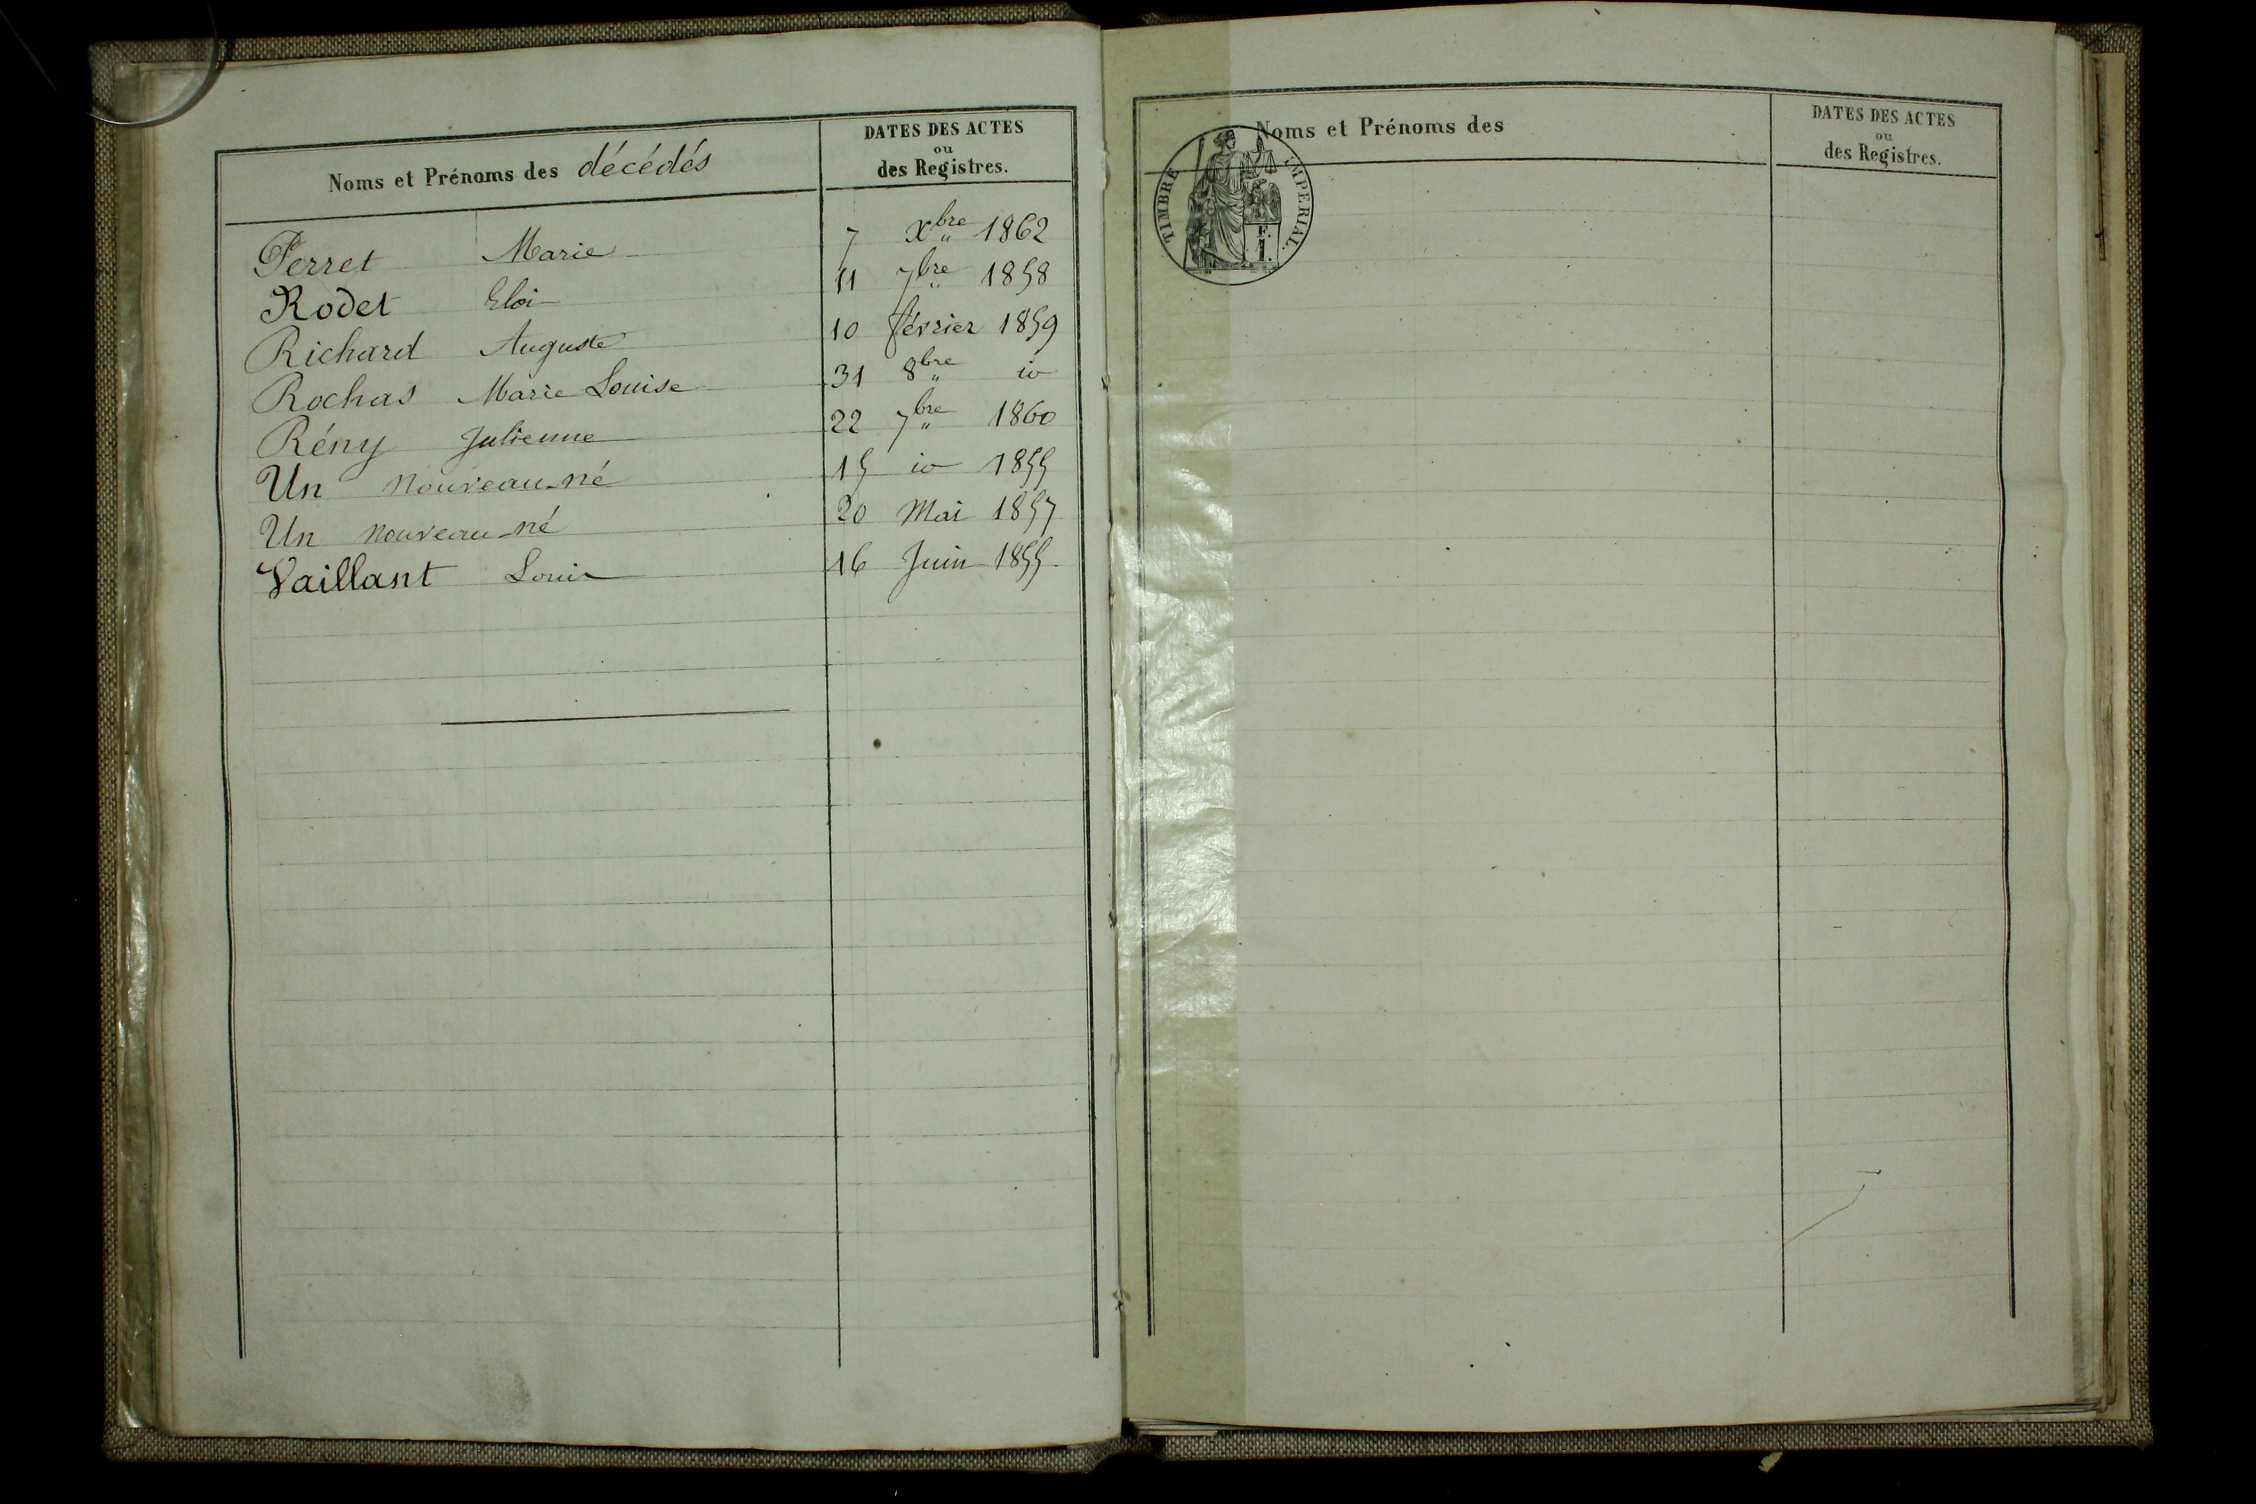 Noms et Prénoms des décédés
DATES DES ACTES
ou
des Registres.
Perret Marie 7 Xbre 1862
Rodet Eloi 11 7bre 1858
Richard Auguste 10 février 1859
Rochas Marie Louise 31 8bre io
Rény Julienne 22 7bre 1860
Un nouveau-né 15 io 1855
Un nouveau-né 20 Mai 1857
Vaillant Louis 16 Juin 1855
Noms et Prénoms des
DATES DES ACTES
ou
des Registres.
TIMBRE IMPERIAL.